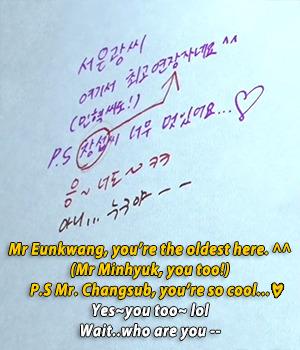 서은광씨
여기서 최고 연장자네요 ^^
(민혁씨도!)
P.S 창섭씨 너무 멋있어요...♡
응~ 너도~ ㅋㅋ
아니... 누구야 ㅡㅡ
Mr Eunkwang, you're the oldest here. ^^
(Mr Minhyuk, you too!)
P.S Mr. Changsub, you're so cool...♥
Yes~you too~ lol
Wait..who are you --